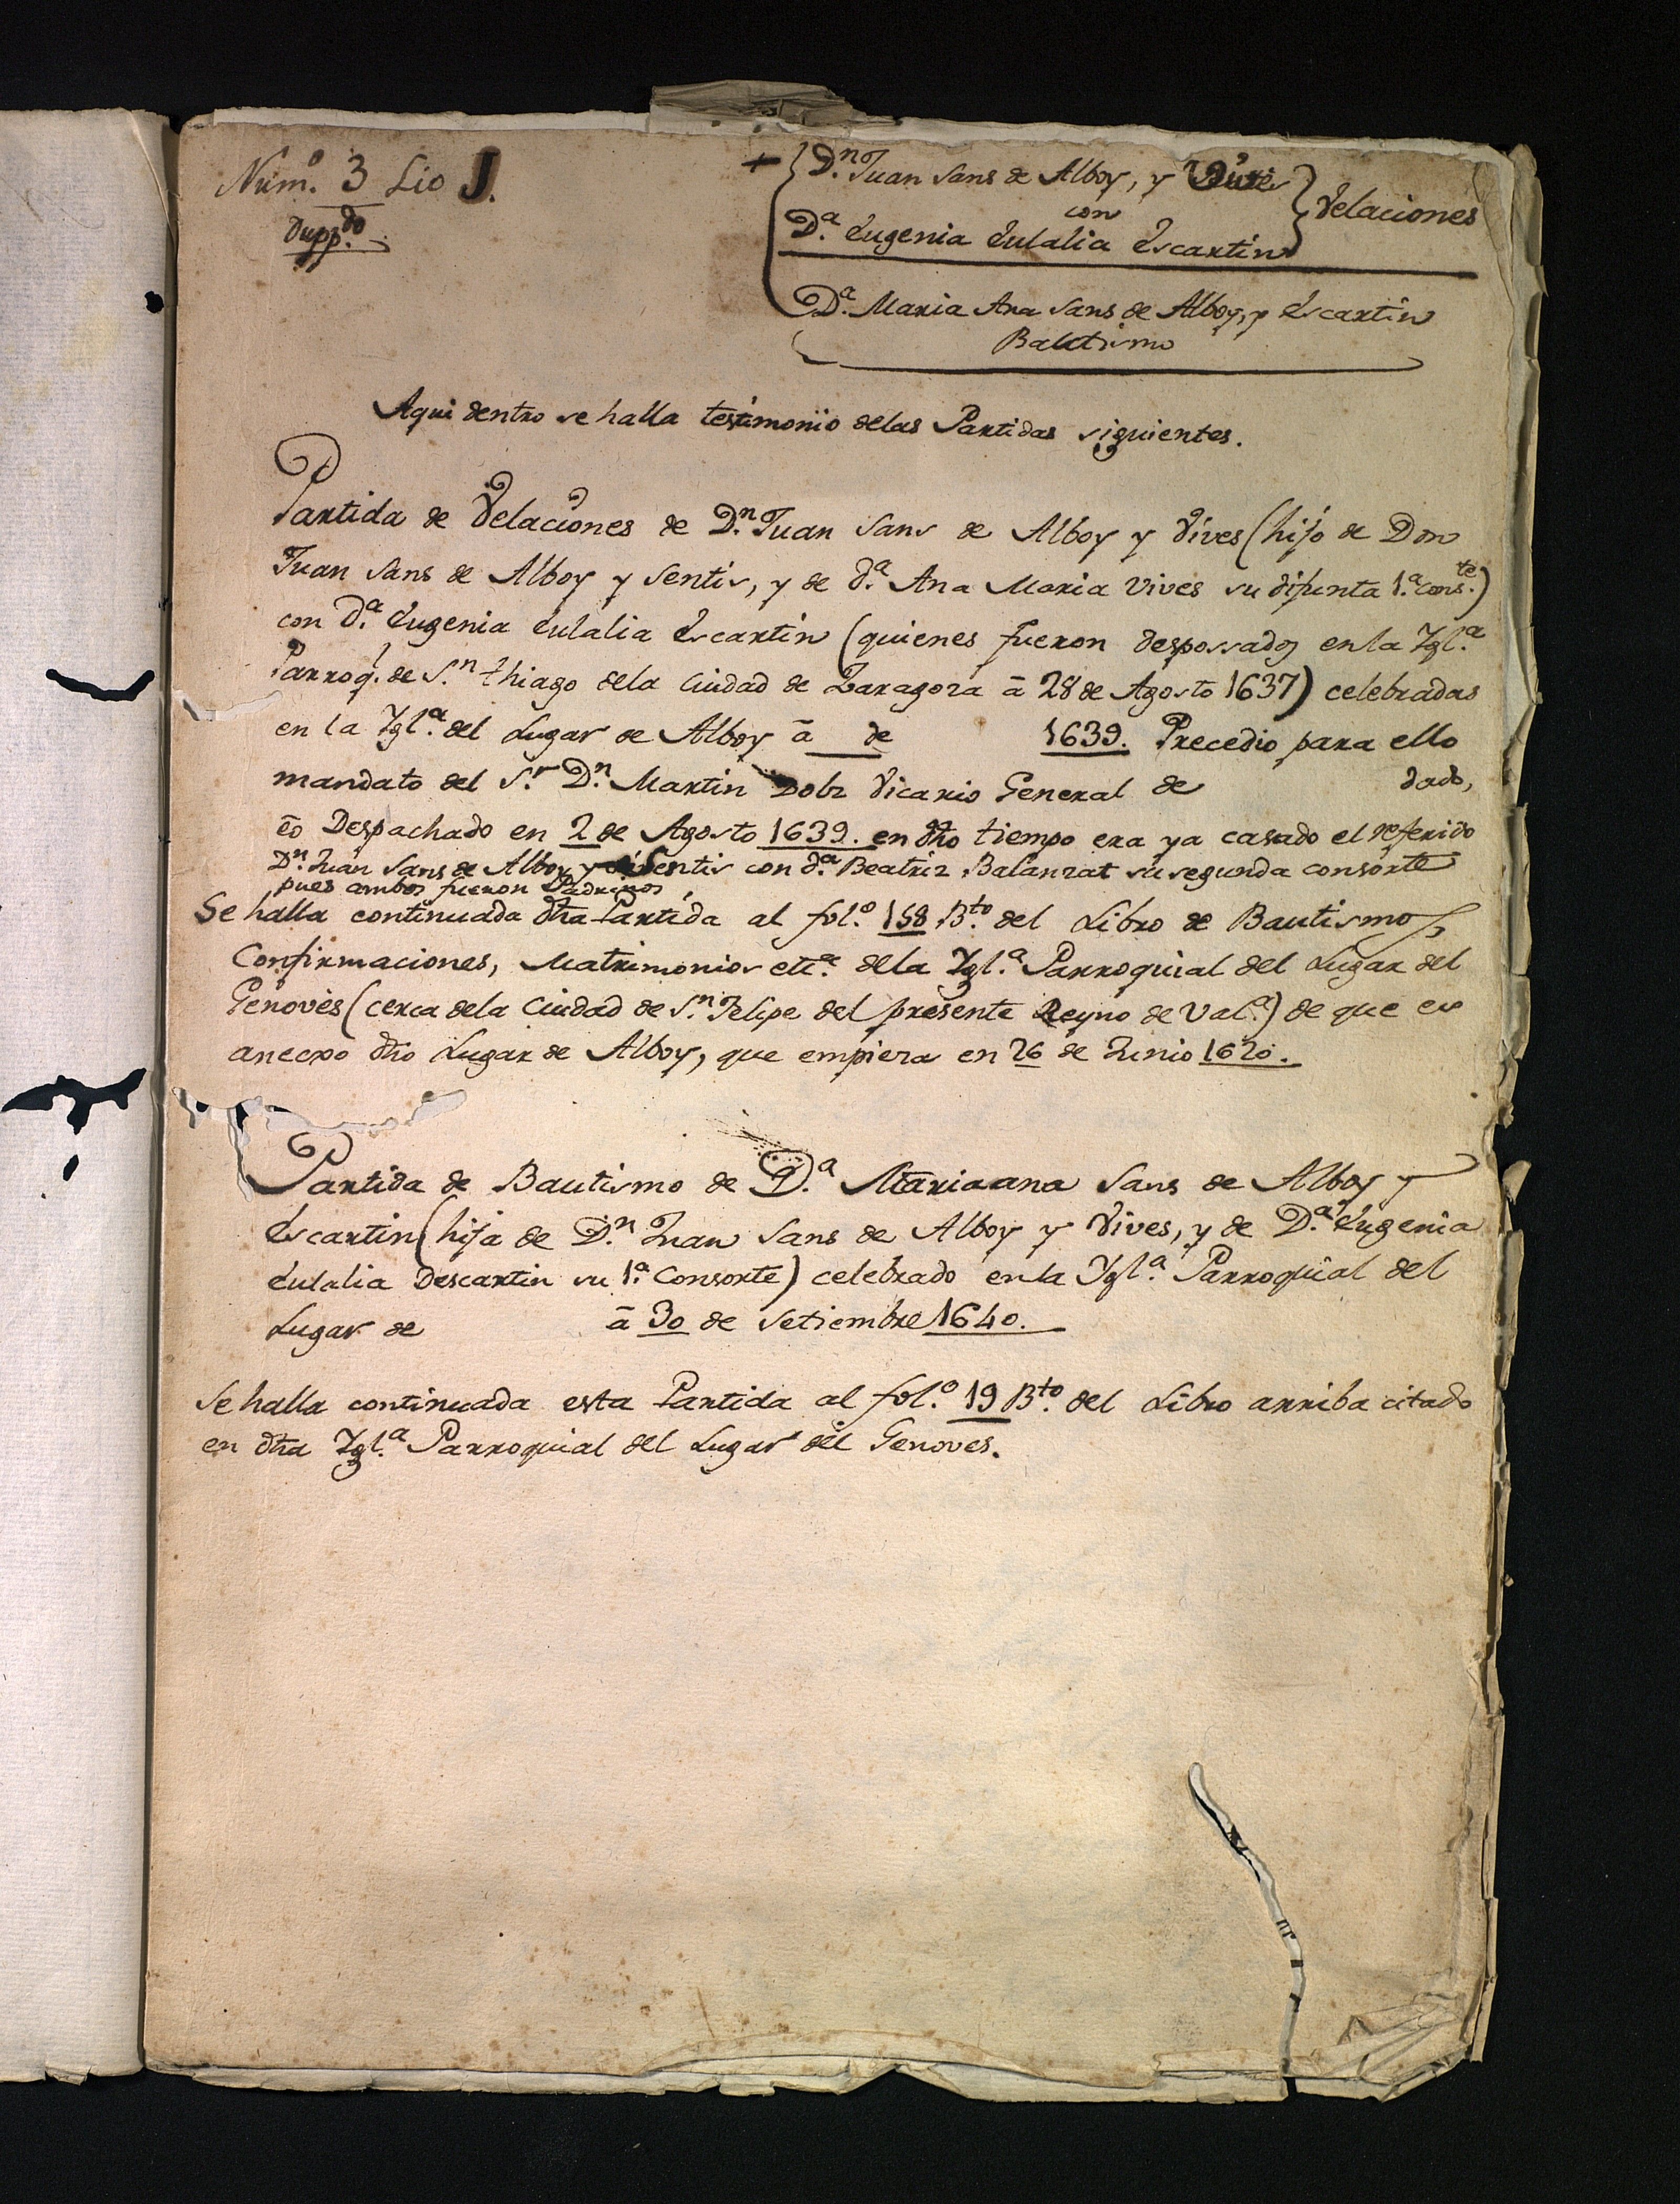 Num.º 3 Lio J.
Dupp.do
+ D.n Juan Sans de Alboy, y Vives
con
D.a Eugenia Eulalia Escartin
Velaciones
D.a Maria Ana Sans de Alboy, y Escartin
Bautismo
Aqui dentro se halla testimonio delas Partidas siguientes.
Partida de Velaciones de D.n Juan Sans de Alboy y Vives (hijo de Don
Juan Sans de Alboy y Sentis, y de d.a Ana Maria Vives su difunta 1.a cons.te)
con d.a Eugenia Eulalia Escartin (quienes fueron desposados en la Igl.a
Parroq.l de S.n thiago dela Ciudad de Zaragoza ã 28 de Agosto 1637) celebradas
en la Igl.a del Lugar de Alboy ã de 1639. Precedio para ello
mandato del S.r D.n Martin Dolz Vicario General de dado,
ẽo Despachado en 2 de Agosto 1639. en dho tiempo era ya casado el referido
D.n Juan Sans de Alboy y Sentis con d.a Beatriz Balanzat su segunda consorte
pues ambos fueron Padrinos
Se halla continuada dha Partida al fol.o 158 B.to del Libro de Bautismos,
Confirmaciones, Matrimonios etc.a dela Igl.a Parroquial del Lugar del
Genovès (cerca dela Ciudad de S.n Felipe del presente Reyno de Val.a) de que es
anecxo dho Lugar de Alboy, que empieza en 26 de Junio 1620.
Partida de Bautismo de D.a Mariaana Sans de Alboy y
Escartin (hija de D.n Juan Sans de Alboy y Vives, y de D.a Eugenia
Eulalia Descartin su 1.a Consorte) celebrado en la Igl.a Parroquial del
Lugar de ã 30 de Setiembre 1640.
Se halla continuada esta Partida al fol.o 19 B.to del Libro arriba citado
en dha Igl.a Parroquial del Lugar del Genoves.